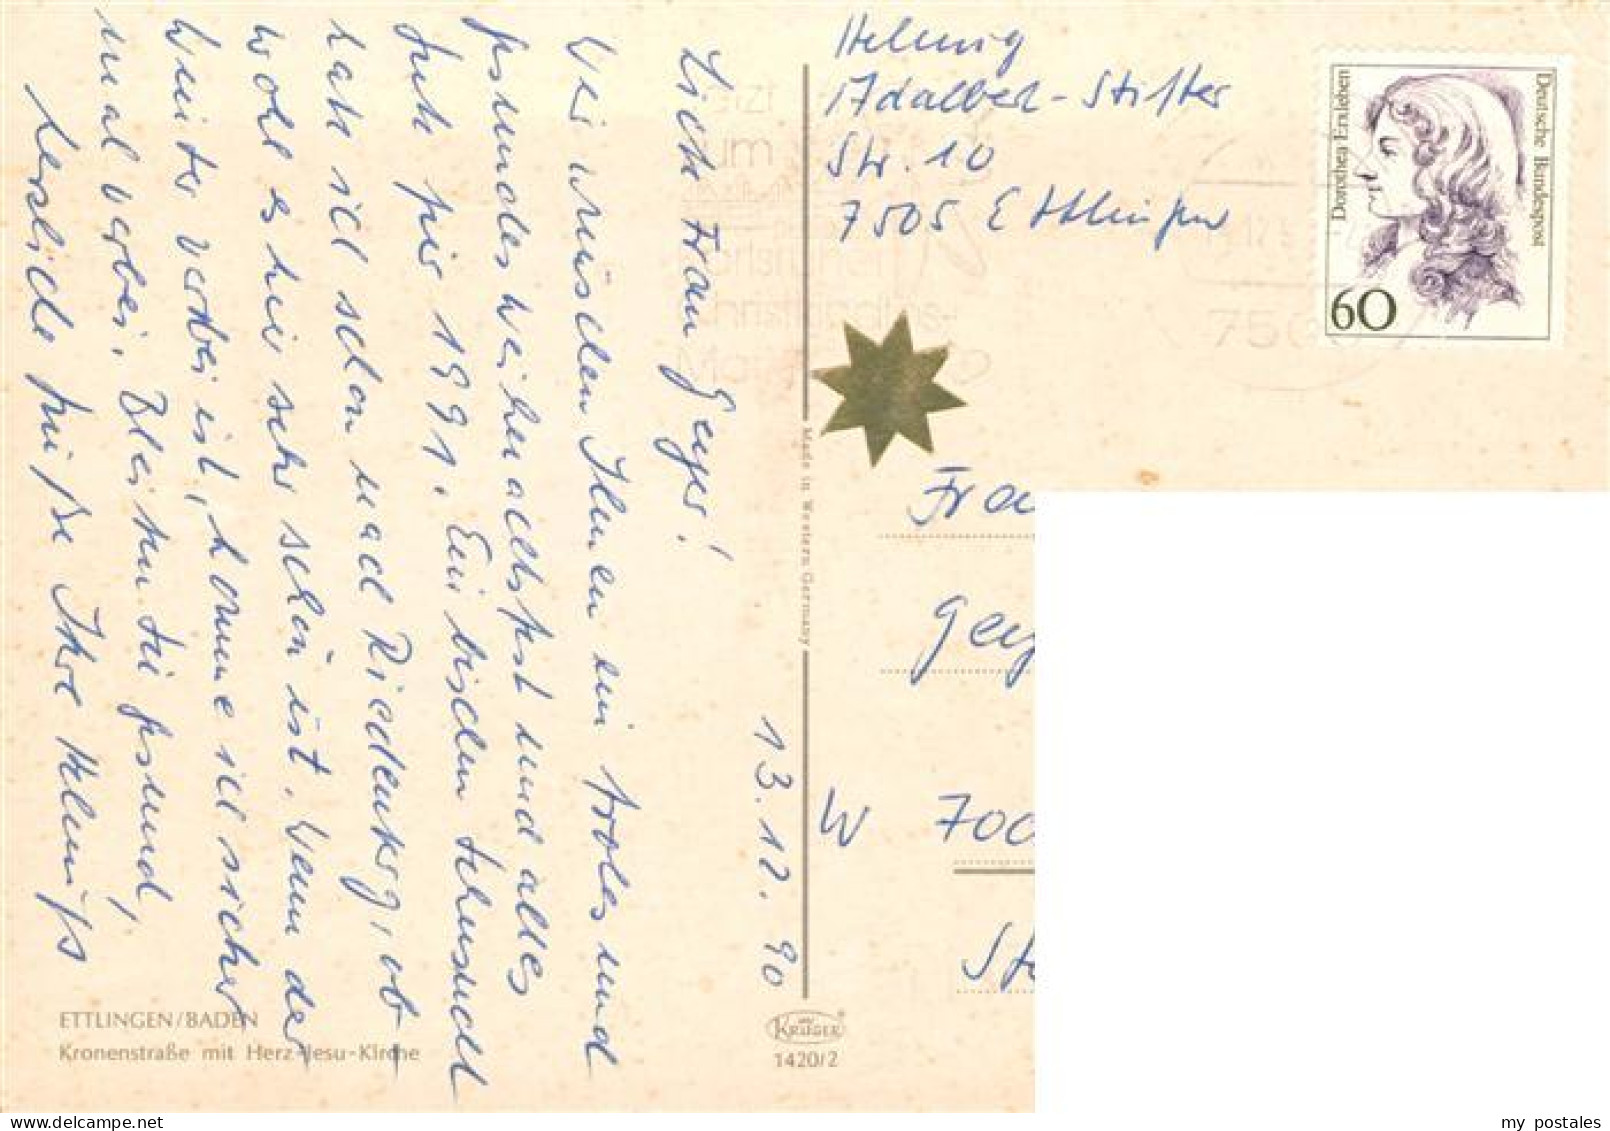 13.12.90
Liebe Frau Geyer!
Wir wünschen Ihnen ein frohes und
gesundes Weihnachtsfest und alles
Gute für 1991. Ein bischen Sehnsucht
hab ich schon nach Riedenberg, ob-
wohl es hier sehr schön ist. Wenn der
Winter vorbei ist, komme ich sicher
mal vorbei. Bleiben Sie gesund,
herzliche Grüße Ihre Helmigs
Helmig
Adalbert-Stifter
Str. 10
7505 Ettlingen
Deutsche Bundespost
Dorothea Erxleben
60
Karlsruher
Christkindles-
750
Made in Western Germany
Fra
Gey
W 700
St
ETTLINGEN/BADEN
Kronenstraße mit Herz-Jesu-Kirche
KRÜGER
1420/2
my postales